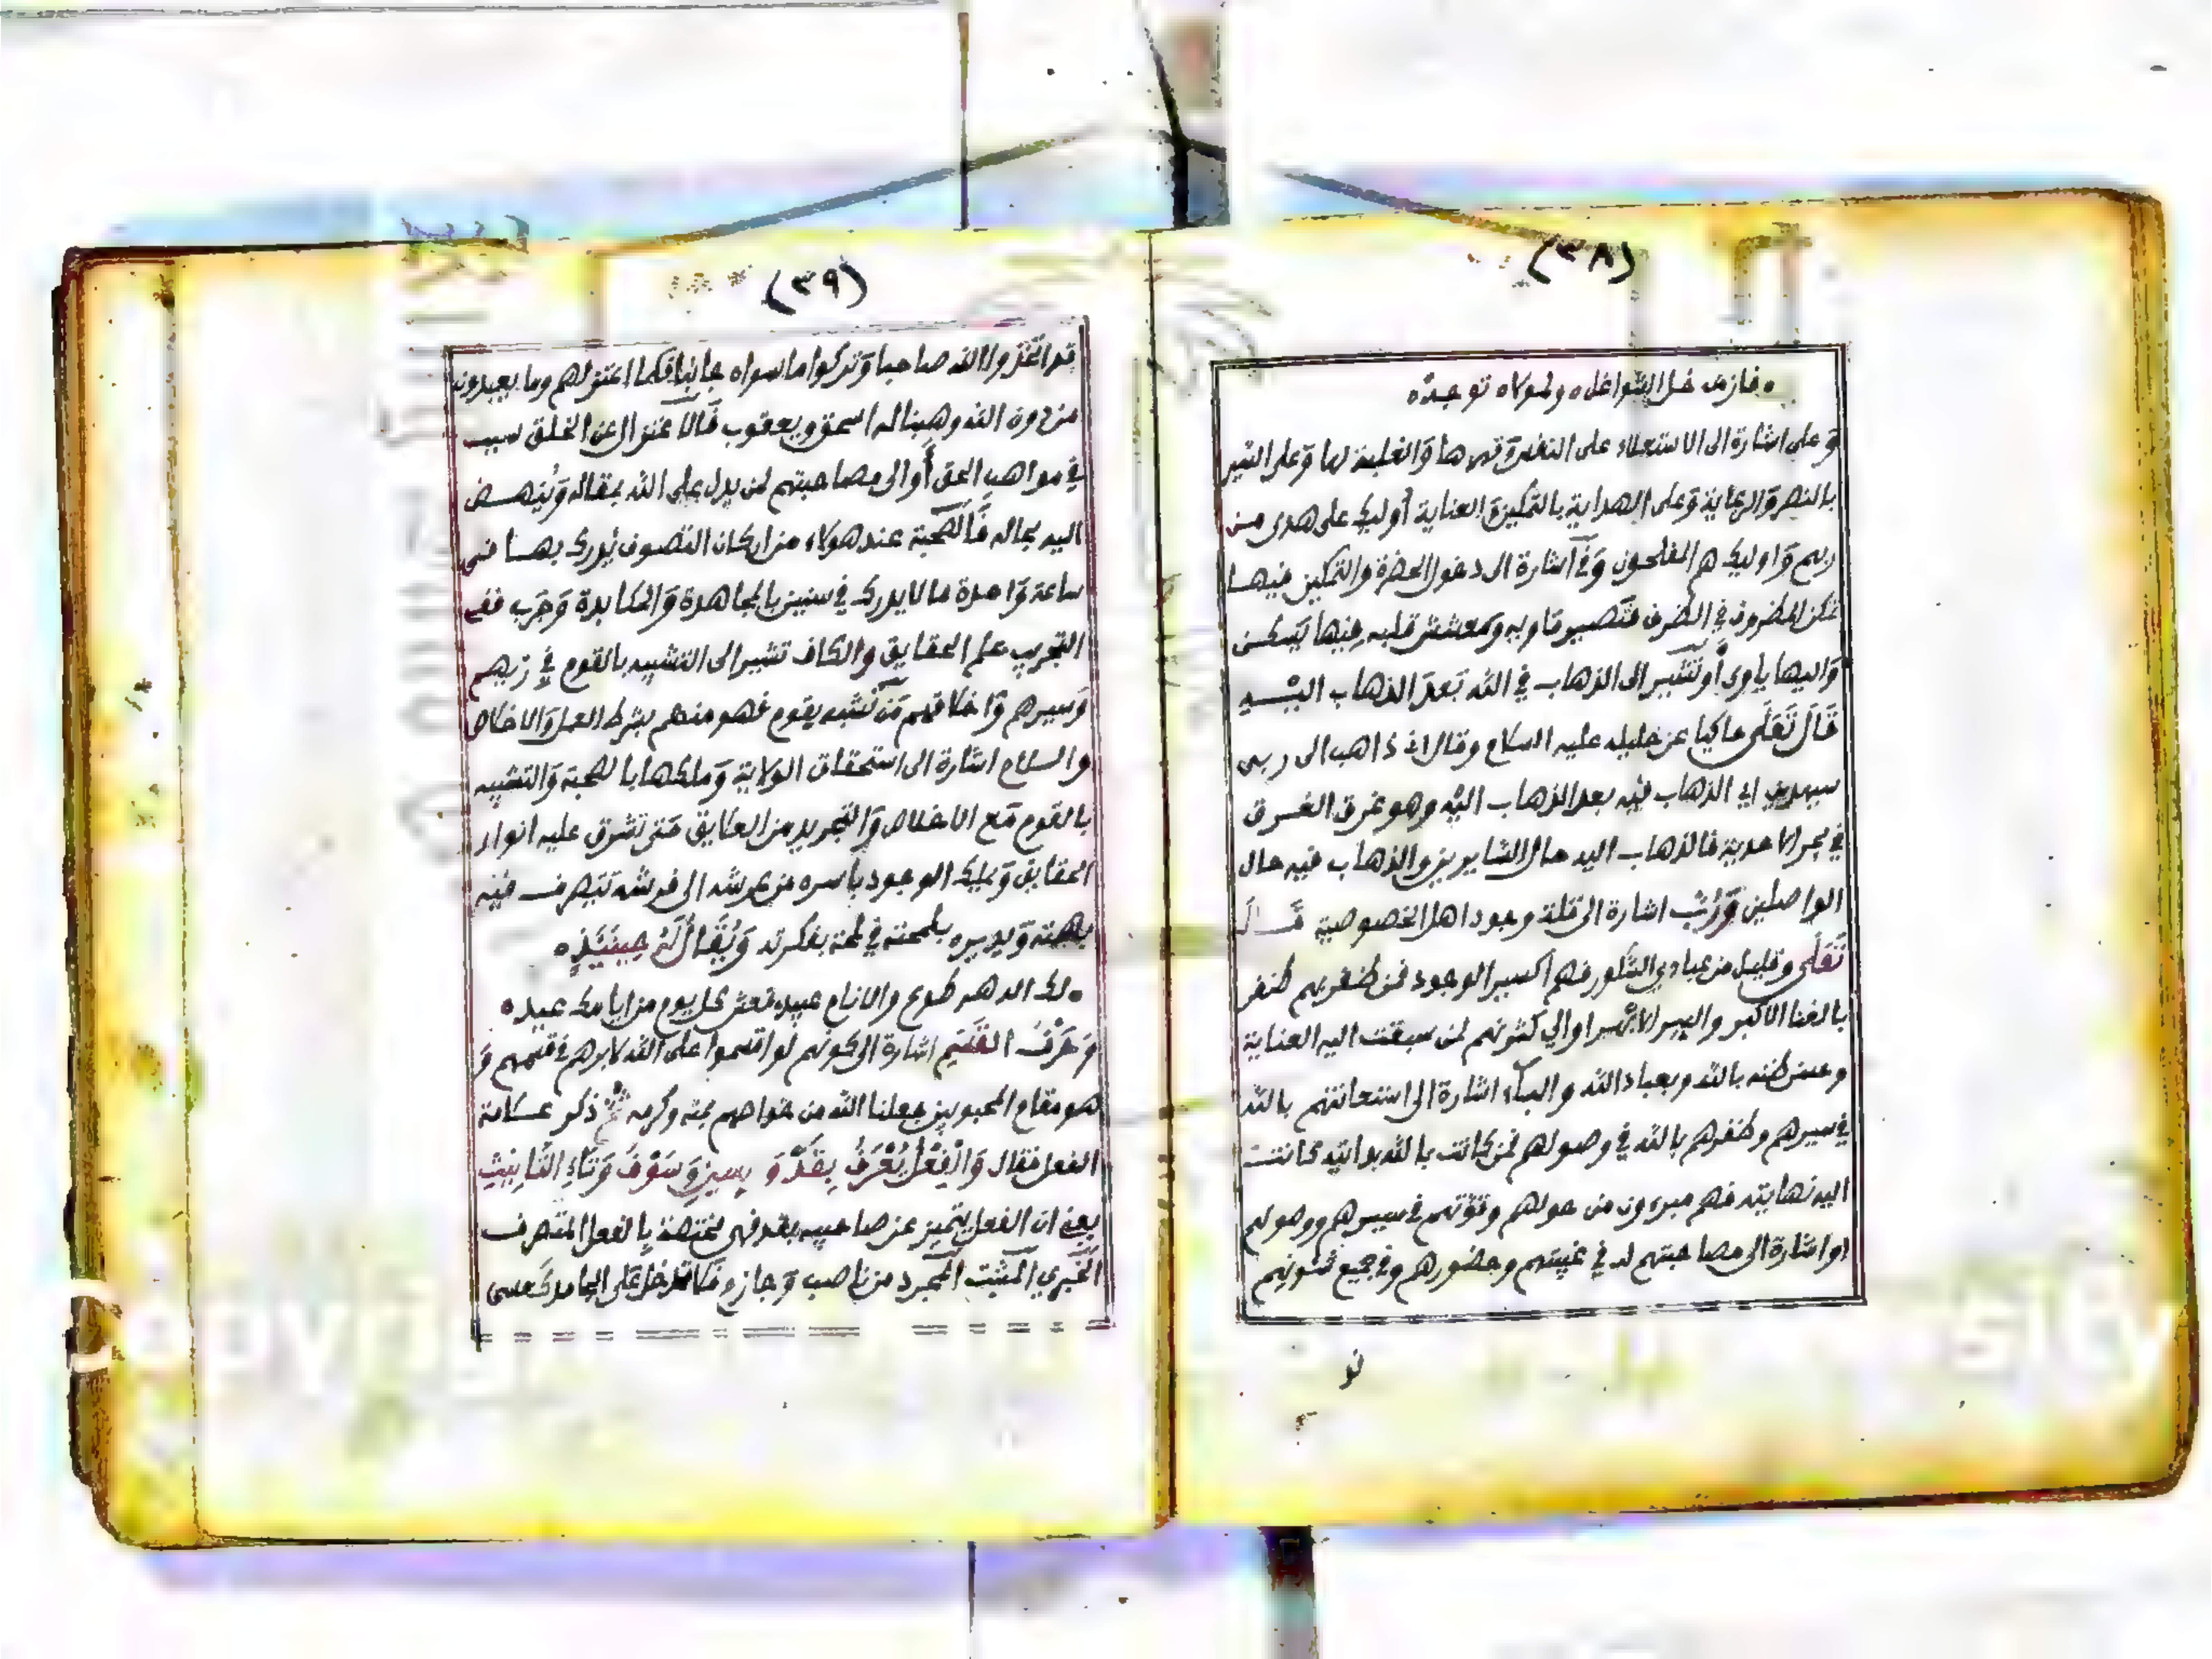 (٣٨)
ه فاز من خلى الشواغل ه ولمولاه توجده
وعلى اشارة الى الاستعلاء على النفس وقهرها والغلبة لها وعلى السير
بالنصر والرعاية وعلى الهداية بالتمكين والعناية أوليك على هدى من
ربهم واوليك هم المفلحون وفى اشارة الى دخول الحضرة والتمكين فيها
تمكن المظروف في الظرف فتصير مأويه ومعشش قلبه فيها يسكن
واليها ياوى أو تشير الى الذهاب في الله بعد الذهاب اليه
قال تعلى حاكيا عن خليله عليه السلام وقال انى ذاهب الى ربى
سيهدين اى الذهاب فيه بعد الذهاب اليه وهو غرق الغرق
في بحر الاحدية فالذهاب اليه حال السايرين والذهاب فيه حال
الواصلين ورب اشارة الى قلة وجود اهل الخصوصية قال
تعلى وقليل من عبادي الشكور فهم اكسير الوجود فمن ظفر بهم ظفر
بالغنا الاكبر والسر الابهر او الي كثرتهم لمن سبقت اليه العناية
وحسن ظنه بالله وبعباد الله والباء اشارة الى استعانتهم بالله
في سيرهم وظفرهم بالله في وصولهم فمن كانت بالله بدايته كانت
اليه نهايته فهم مبرءون من حولهم وقوتهم في سيرهم ووصولهم
او اشارة الى مصاحبتهم له في غيبتهم وحضورهم وفي جميع شئونهم
(٣٩)
قد اتخذوا الله صاحبا وتركوا ما سواه جانبا فلما اعتزلهم وما يعبدون
من دون الله وهبنا له اسحق ويعقوب فالاعتزال عن الخلق سبب
في مواهب الحق أو الى مصاحبتهم لمن يدل على الله بمقاله وينهض
اليه بحاله فالصحبة عند هولاء من اركان التصوف يدرك بها فى
ساعة واحدة ما لا يدرك في سنين بالمجاهدة والمكابدة وجرب ففى
التجريب علم الحقايق والكاف تشير الى التشبيه بالقوم في زيهم
وسيرهم واخلاقهم من تشبه بقوم فهو منهم بشرط العمل والاخلاص
والسلام اشارة الى استحقاق الولاية وملكها بالصحبة والتشبيه
بالقوم مع الاخلاص والتجريد من العلايق حتى تشرق عليه انوار
الحقايق ويملك الوجود باسره من عرشه الى فرشه يتصرف فيه
بهمته ويديره بلمحته في لمحة بفكرته ويقال له حينيذ ه
ه لك الدهر طوع والانام عبيد فعش كل يوم من ايامك عيد ه
وحرف القسم اشارة الى كونهم لو اقسموا على الله لابرهم في قسمهم و
هو مقام المحبوبين جعلنا الله من خواصهم بمنه وكرمه ثم ذكر علامة
الفعل فقال والفعل يعرف بقد و بسين وسوف وتاء التانيث
يعنى ان الفعل يتميز عن صاحبيه بقد فهى مختصة بالفعل المتصرف
الخبري المثبت المجرد من ناصب وجازم فلا تدخل على الجامد كعسى